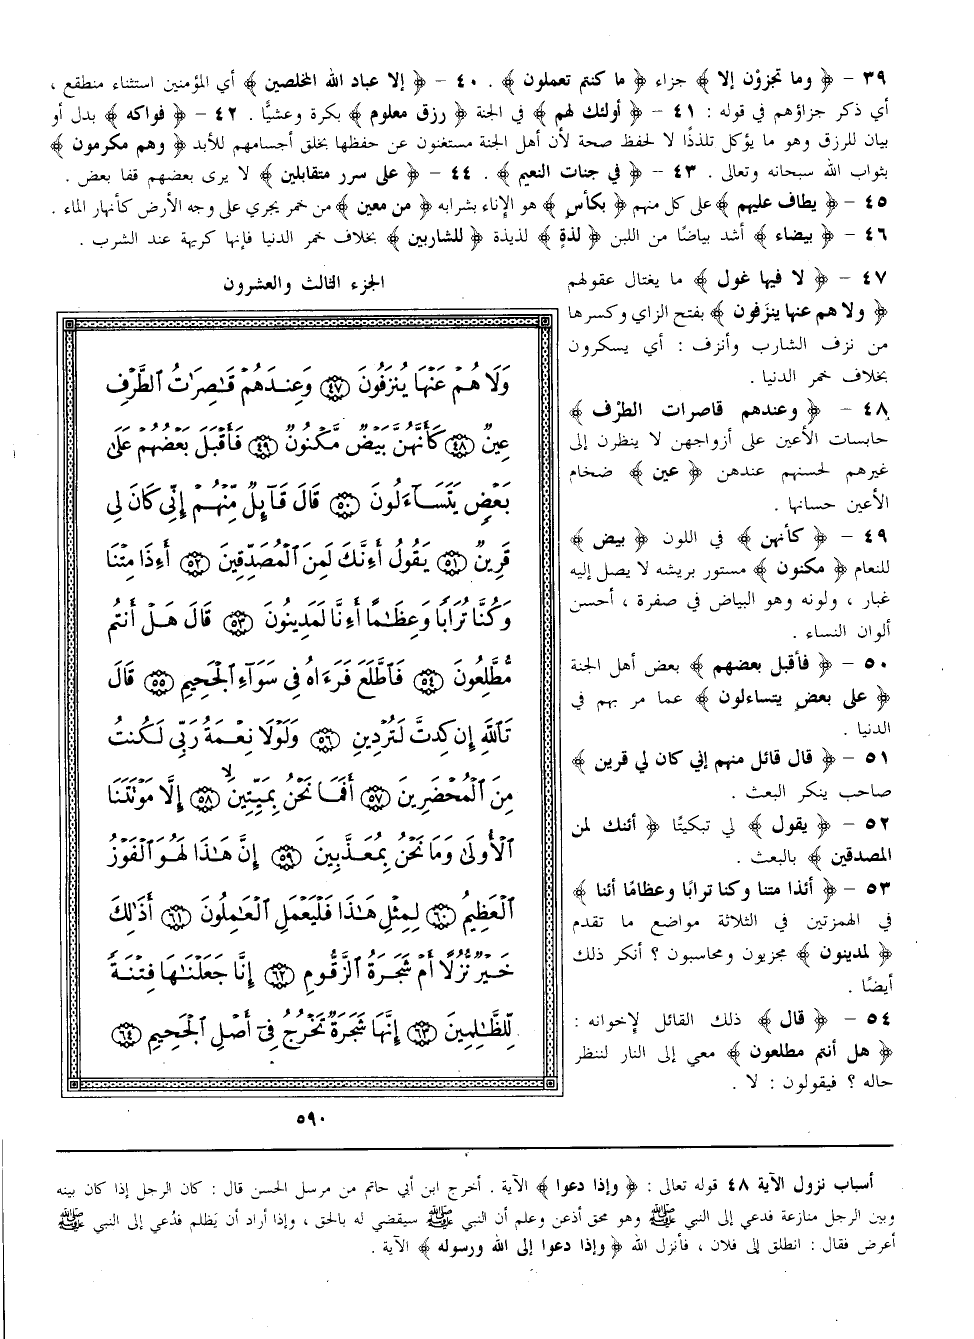 ٣٩ - ﴿ وما تجزوْن إلا ﴾ جزاء ﴿ ما كنتم تعملون ﴾ . ٤٠ - ﴿ إلا عباد الله المخلصين ﴾ أي المؤمنين استثناء منطقع ،
أي ذكر جزاؤهم في قوله : ٤١ - ﴿ أولئك لهم ﴾ في الجنة ﴿ رزق معلوم ﴾ بكرة وعشيًّا . ٤٢ - ﴿ فواكه ﴾ بدل أو
بيان للرزق وهو ما يؤكل تلذذًا لا لحفظ صحة لأن أهل الجنة مستغنون عن حفظها بخلق أجسامهم للأبد ﴿ وهم مكرمون ﴾
بثواب الله سبحانه وتعالى . ٤٣ - ﴿ في جنات النعيم ﴾ . ٤٤ - ﴿ على سرر متقابلين ﴾ لا يرى بعضهم قفا بعض .
٤٥ - ﴿ يطاف عليهم ﴾ على كل منهم ﴿ بكأس ﴾ هو الإناء بشرابه ﴿ من معين ﴾ من خمر يجري على وجه الأرض كأنهار الماء .
٤٦ - ﴿ بيضاء ﴾ أشد بياضًا من اللبن ﴿ لذةٍ ﴾ لذيذة ﴿ للشاربين ﴾ بخلاف خمر الدنيا فإنها كريهة عند الشرب .
٤٧ - ﴿ لا فيها غول ﴾ ما يغتال عقولهم
﴿ ولا هم عنها ينزَفون ﴾ بفتح الزاي وكسرها
من نزف الشارب وأنزف : أي يسكرون
بخلاف خمر الدنيا .
٤٨ - ﴿ وعندهم قاصرات الطرْف ﴾
حابسات الأعين على أزواجهن لا ينظرن إلى
غيرهم لحسنهم عندهن ﴿ عين ﴾ ضخام
الأعين حسانها .
٤٩ - ﴿ كأنهن ﴾ في اللون ﴿ بيض ﴾
للنعام ﴿ مكنون ﴾ مستور بريشه لا يصل إليه
غبار ، ولونه وهو البياض في صفرة ، أحسن
ألوان النساء .
٥٠ - ﴿ فأقبل بعضهم ﴾ بعض أهل الجنة
﴿ على بعض يتساءلون ﴾ عما مر بهم في
الدنيا .
٥١ - ﴿ قال قائل منهم إني كان لي قرين ﴾
صاحب ينكر البعث .
٥٢ - ﴿ يقول ﴾ لي تبكيتًا ﴿ أئنك لمن
المصدقين ﴾ بالبعث .
٥٣ - ﴿ أئذا متنا وكنا ترابًا وعظامًا أئنا ﴾
في الهمزتين في الثلاثة مواضع ما تقدم
﴿ لمدينون ﴾ مجزيون ومحاسبون ؟ أنكر ذلك
أيضًا .
٥٤ - ﴿ قال ﴾ ذلك القائل لإخوانه :
﴿ هل أنتم مطلعون ﴾ معي إلى النار لننظر
حاله ؟ فيقولون : لا .
الجزء الثالث والعشرون
وَلَا هُمْ عَنْهَا يُنزَفُونَ ٤٧ وَعِندَهُمْ قَٰصِرَٰتُ ٱلطَّرْفِ
عِينٌ ٤٨ كَأَنَّهُنَّ بَيْضٌ مَّكْنُونٌ ٤٩ فَأَقْبَلَ بَعْضُهُمْ عَلَىٰ
بَعْضٍ يَتَسَآءَلُونَ ٥٠ قَالَ قَآئِلٌ مِّنْهُمْ إِنِّى كَانَ لِى
قَرِينٌ ٥١ يَقُولُ أَءِنَّكَ لَمِنَ ٱلْمُصَدِّقِينَ ٥٢ أَءِذَا مِتْنَا
وَكُنَّا تُرَابًا وَعِظَٰمًا أَءِنَّا لَمَدِينُونَ ٥٣ قَالَ هَلْ أَنتُم
مُّطَّلِعُونَ ٥٤ فَٱطَّلَعَ فَرَءَاهُ فِى سَوَآءِ ٱلْجَحِيمِ ٥٥ قَالَ
تَٱللَّهِ إِن كِدتَّ لَتُرْدِينِ ٥٦ وَلَوْلَا نِعْمَةُ رَبِّى لَكُنتُ
مِنَ ٱلْمُحْضَرِينَ ٥٧ أَفَمَا نَحْنُ بِمَيِّتِينَ ٥٨ إِلَّا مَوْتَتَنَا
ٱلْأُولَىٰ وَمَا نَحْنُ بِمُعَذَّبِينَ ٥٩ إِنَّ هَٰذَا لَهُوَ ٱلْفَوْزُ
ٱلْعَظِيمُ ٦٠ لِمِثْلِ هَٰذَا فَلْيَعْمَلِ ٱلْعَٰمِلُونَ ٦١ أَذَٰلِكَ
خَيْرٌ نُّزُلًا أَمْ شَجَرَةُ ٱلزَّقُّومِ ٦٢ إِنَّا جَعَلْنَٰهَا فِتْنَةً
لِّلظَّٰلِمِينَ ٦٣ إِنَّهَا شَجَرَةٌ تَخْرُجُ فِىٓ أَصْلِ ٱلْجَحِيمِ ٦٤
٥٩٠
أسباب نزول الآية ٤٨ قوله تعالى : ﴿ وإذا دعوا ﴾ الآية . أخرج ابن أبي حاتم من مرسل الحسن قال : كان الرجل إذا كان بينه
وبين الرجل منازعة فدعي إلى النبي ﷺ وهو محق أذعن وعلم أن النبي ﷺ سيقضي له بالحق ، وإذا أراد أن يَظلم فدُعي إلى النبي ﷺ
أعرض فقال : انطلق إلى فلان ، فأنزل الله ﴿ وإذا دعوا إلى الله ورسوله ﴾ الآية .